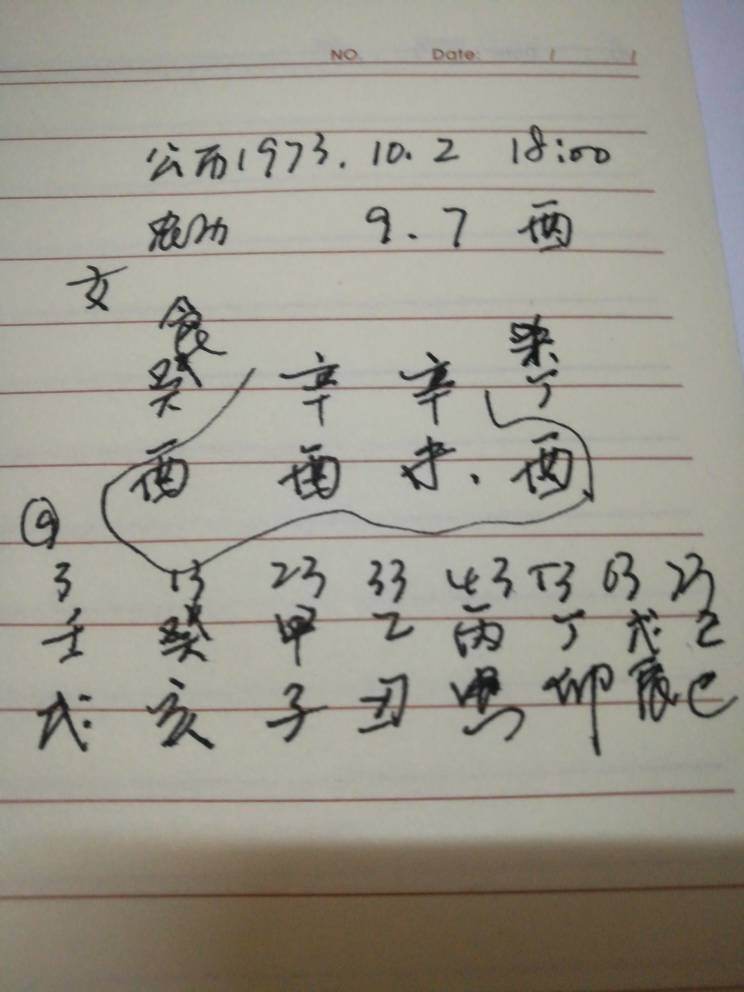 NO. Date: / /
公历1973.10.2 18:00
农历 9.7 酉
女
食 杀
癸 辛 辛 丁
酉 酉 未. 酉
3 13 23 33 43 53 63 73
壬 癸 甲 乙 丙 丁 戊 己
戌 亥 子 丑 寅 卯 辰 巳